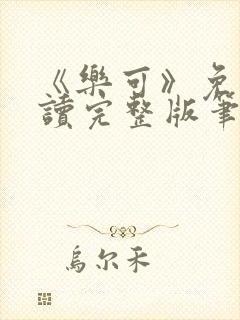 《樂可》免
讀完整版筆
烏尔禾